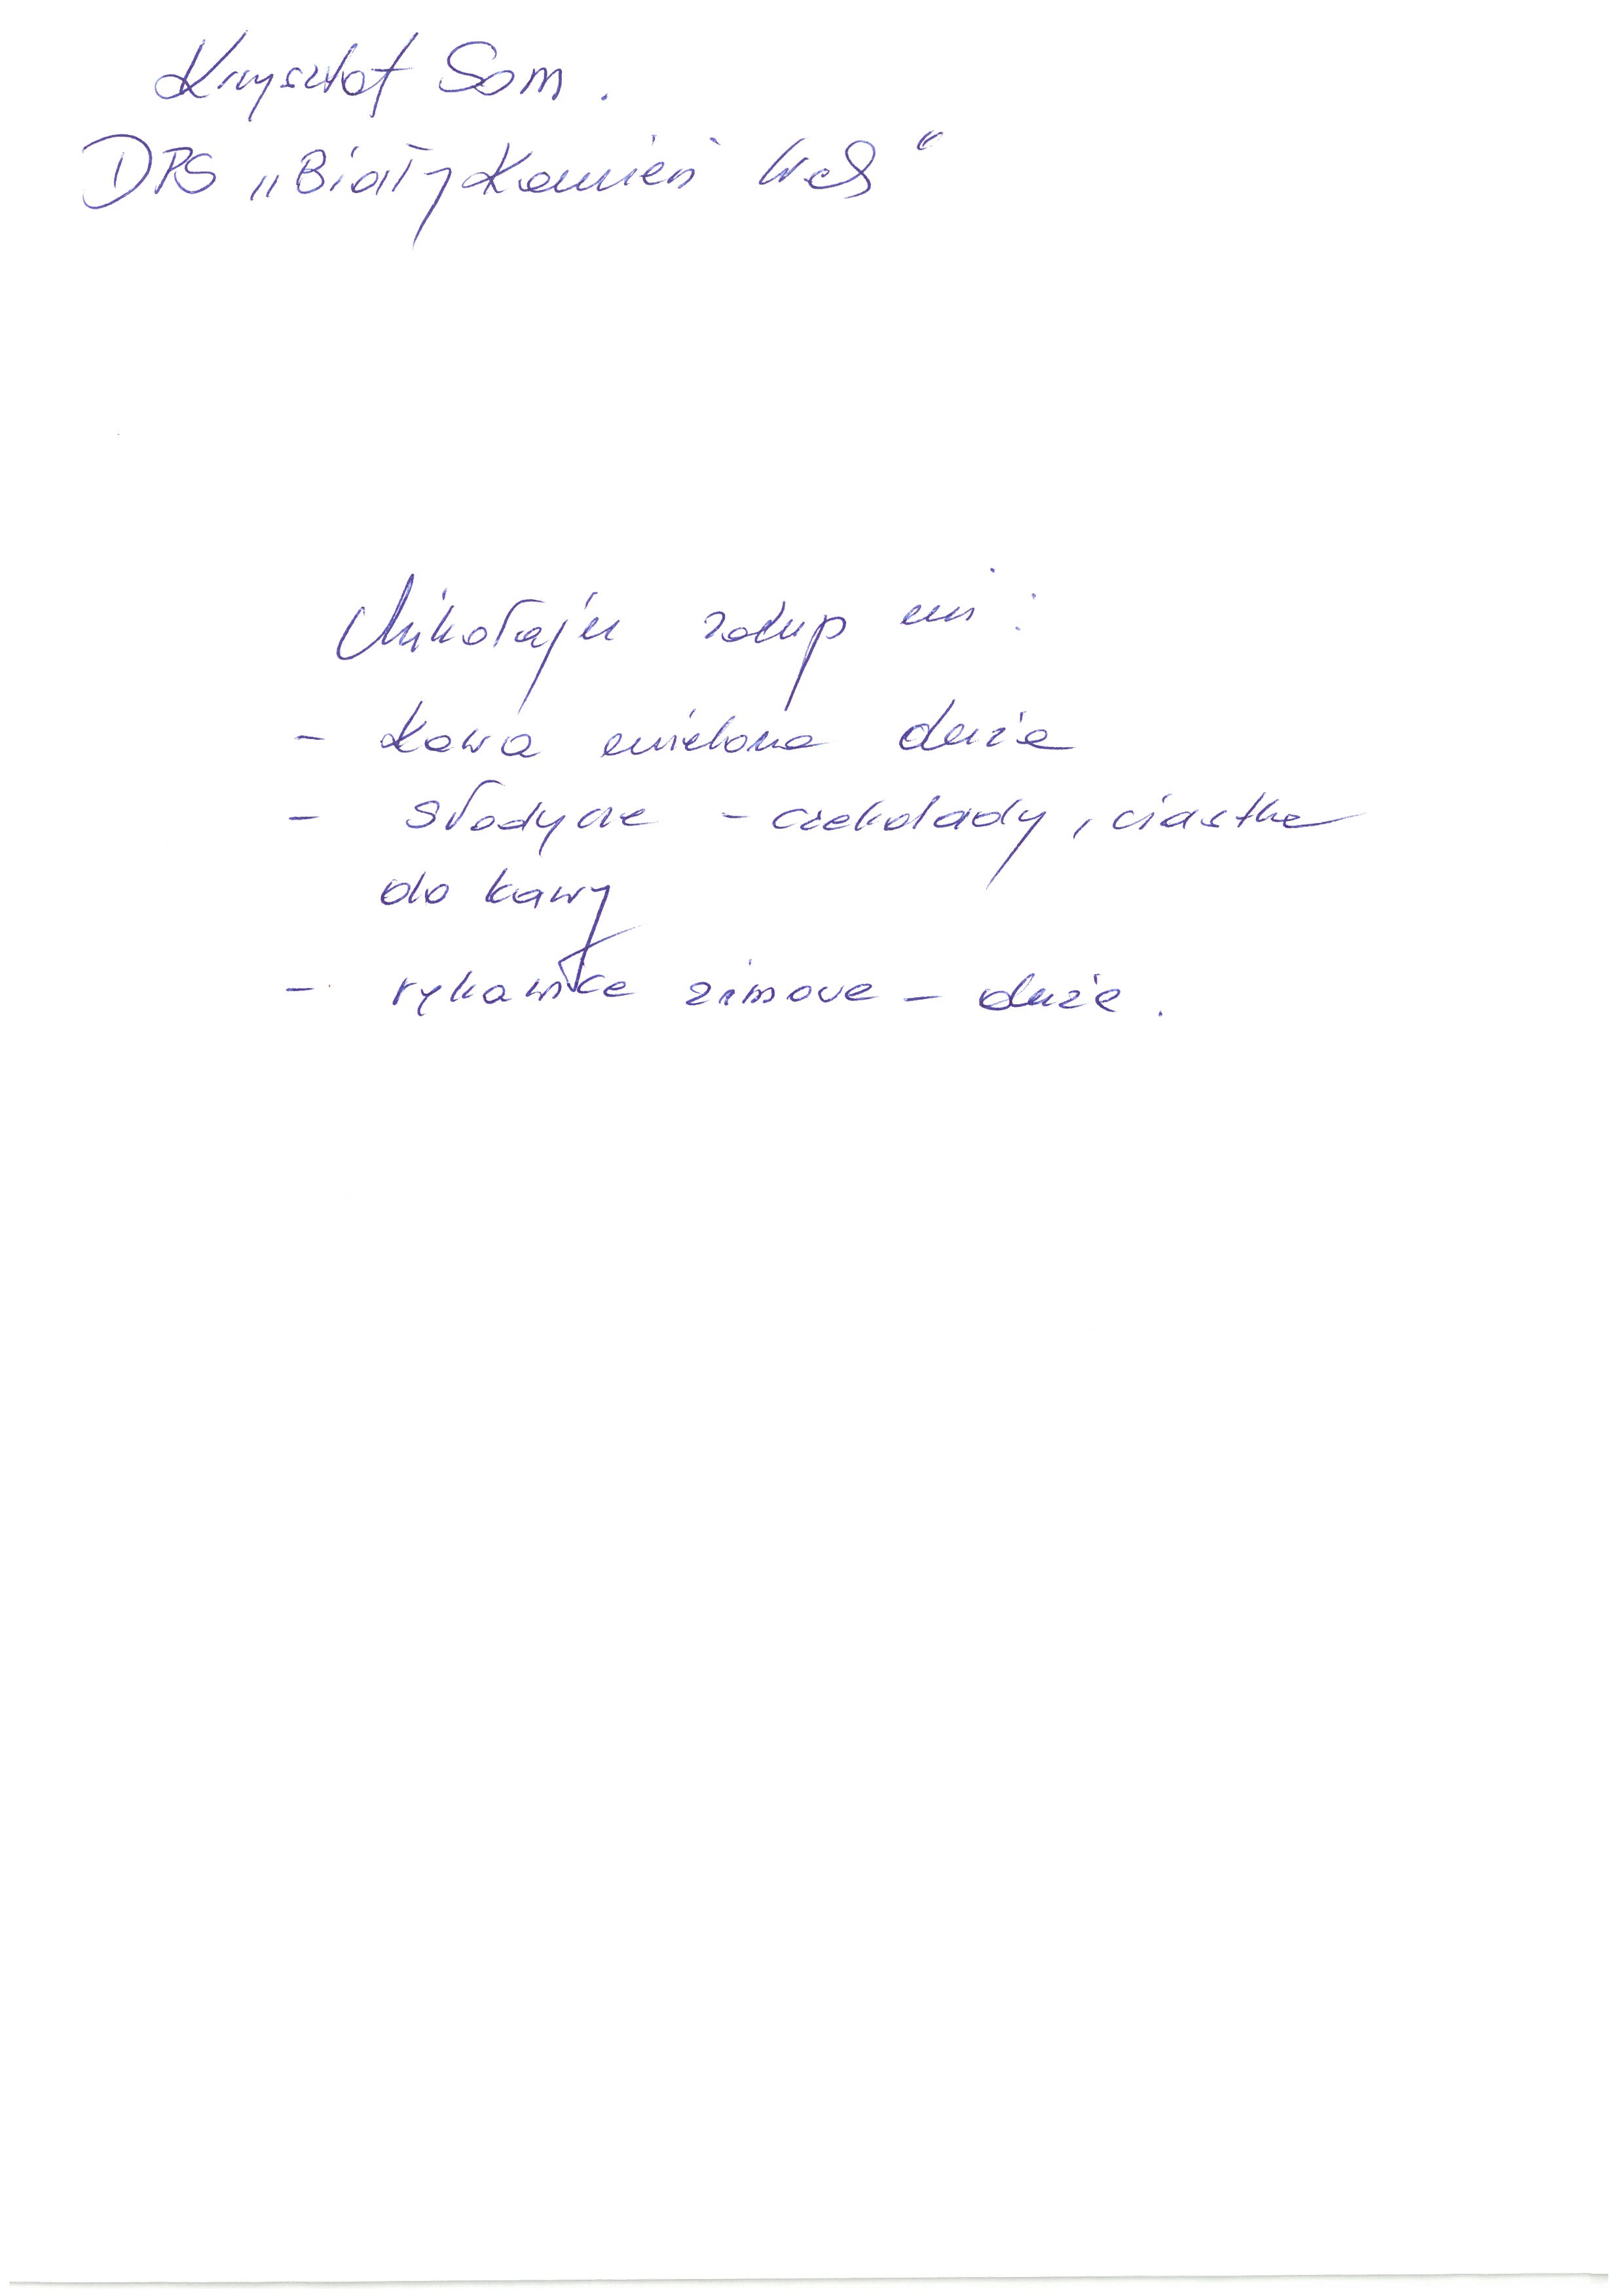 Krzysztof Som.
DPS „Biały Kamień"
Mikołaju zakup mi:
- kawa mielona duża
- słodycze - czekolady, ciastka
do kawy
- rękawice zimowe - duże.